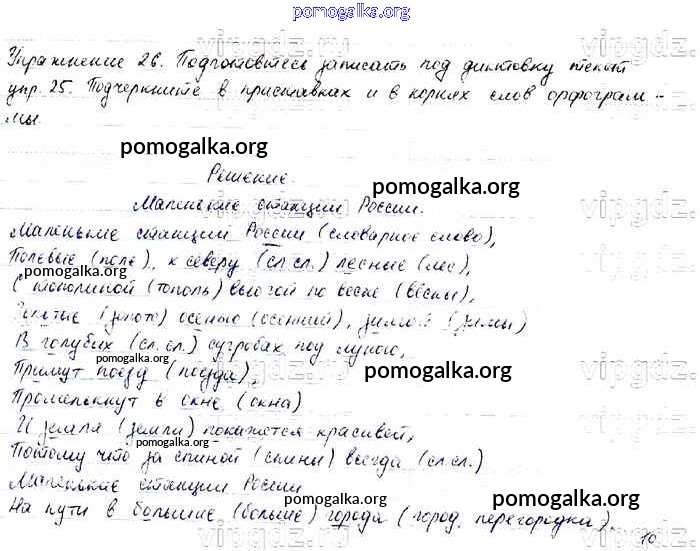 pomogalka.org
Упражнение 26. Подготовьтесь записать под диктовку текст
упр. 25. Подчеркните в приставках и в корнях слов орфограм-
мы
pomogalka.org
Решение.
pomogalka.org
Маленькие станции России.
Маленькие станции России (словарное слово),
Полевые (поле), к северу (сл.сл.) лесные (лес),
pomogalka.org
С тополиной (тополь) вьюгой по весне (вёсны),
Золотые (золото) осенью (осенний), зимой (зимы)
В голубых (сл.сл.) сугробах под луною,
pomogalka.org
Примут поезд (поезда),
pomogalka.org
Промелькнут в окне (окна)
И земля (земли) покажется красивей,
pomogalka.org
Потому что за спиной (спины) всегда (сл.сл.)
Маленькие станции России
pomogalka.org
На пути в большие (больше) города (город, перегородка).
10
vipgdz.ru